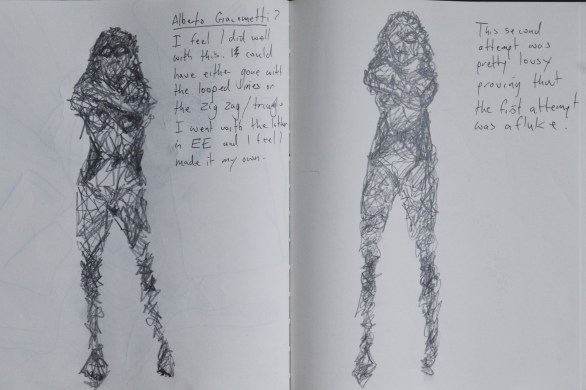 Alberto Giacometti?
I feel I did well
with this. It could
have either gone with
the looped lines or
the Zig Zag/
I went with the latter
in EE and I feel I
made it my own.
This second
attempt was
pretty lousy
proving that
the first attempt
was a fluke.